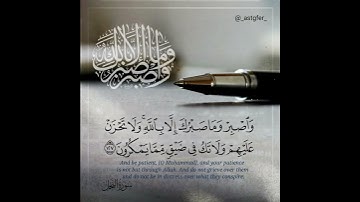 @_astgfer_
وَاصْبِرْ وَمَا صَبْرُكَ إِلَّا بِاللَّهِ
وَٱصْبِرْ وَمَا صَبْرُكَ إِلَّا بِٱللَّهِ ۚ وَلَا تَحْزَنْ
عَلَيْهِمْ وَلَا تَكُ فِى ضَيْقٍ مِّمَّا يَمْكُرُونَ ﴿١٢٧﴾
And be patient, [O Muhammad], and your patience
is not but through Allah. And do not grieve over them
and do not be in distress over what they conspire.
سورة النحل